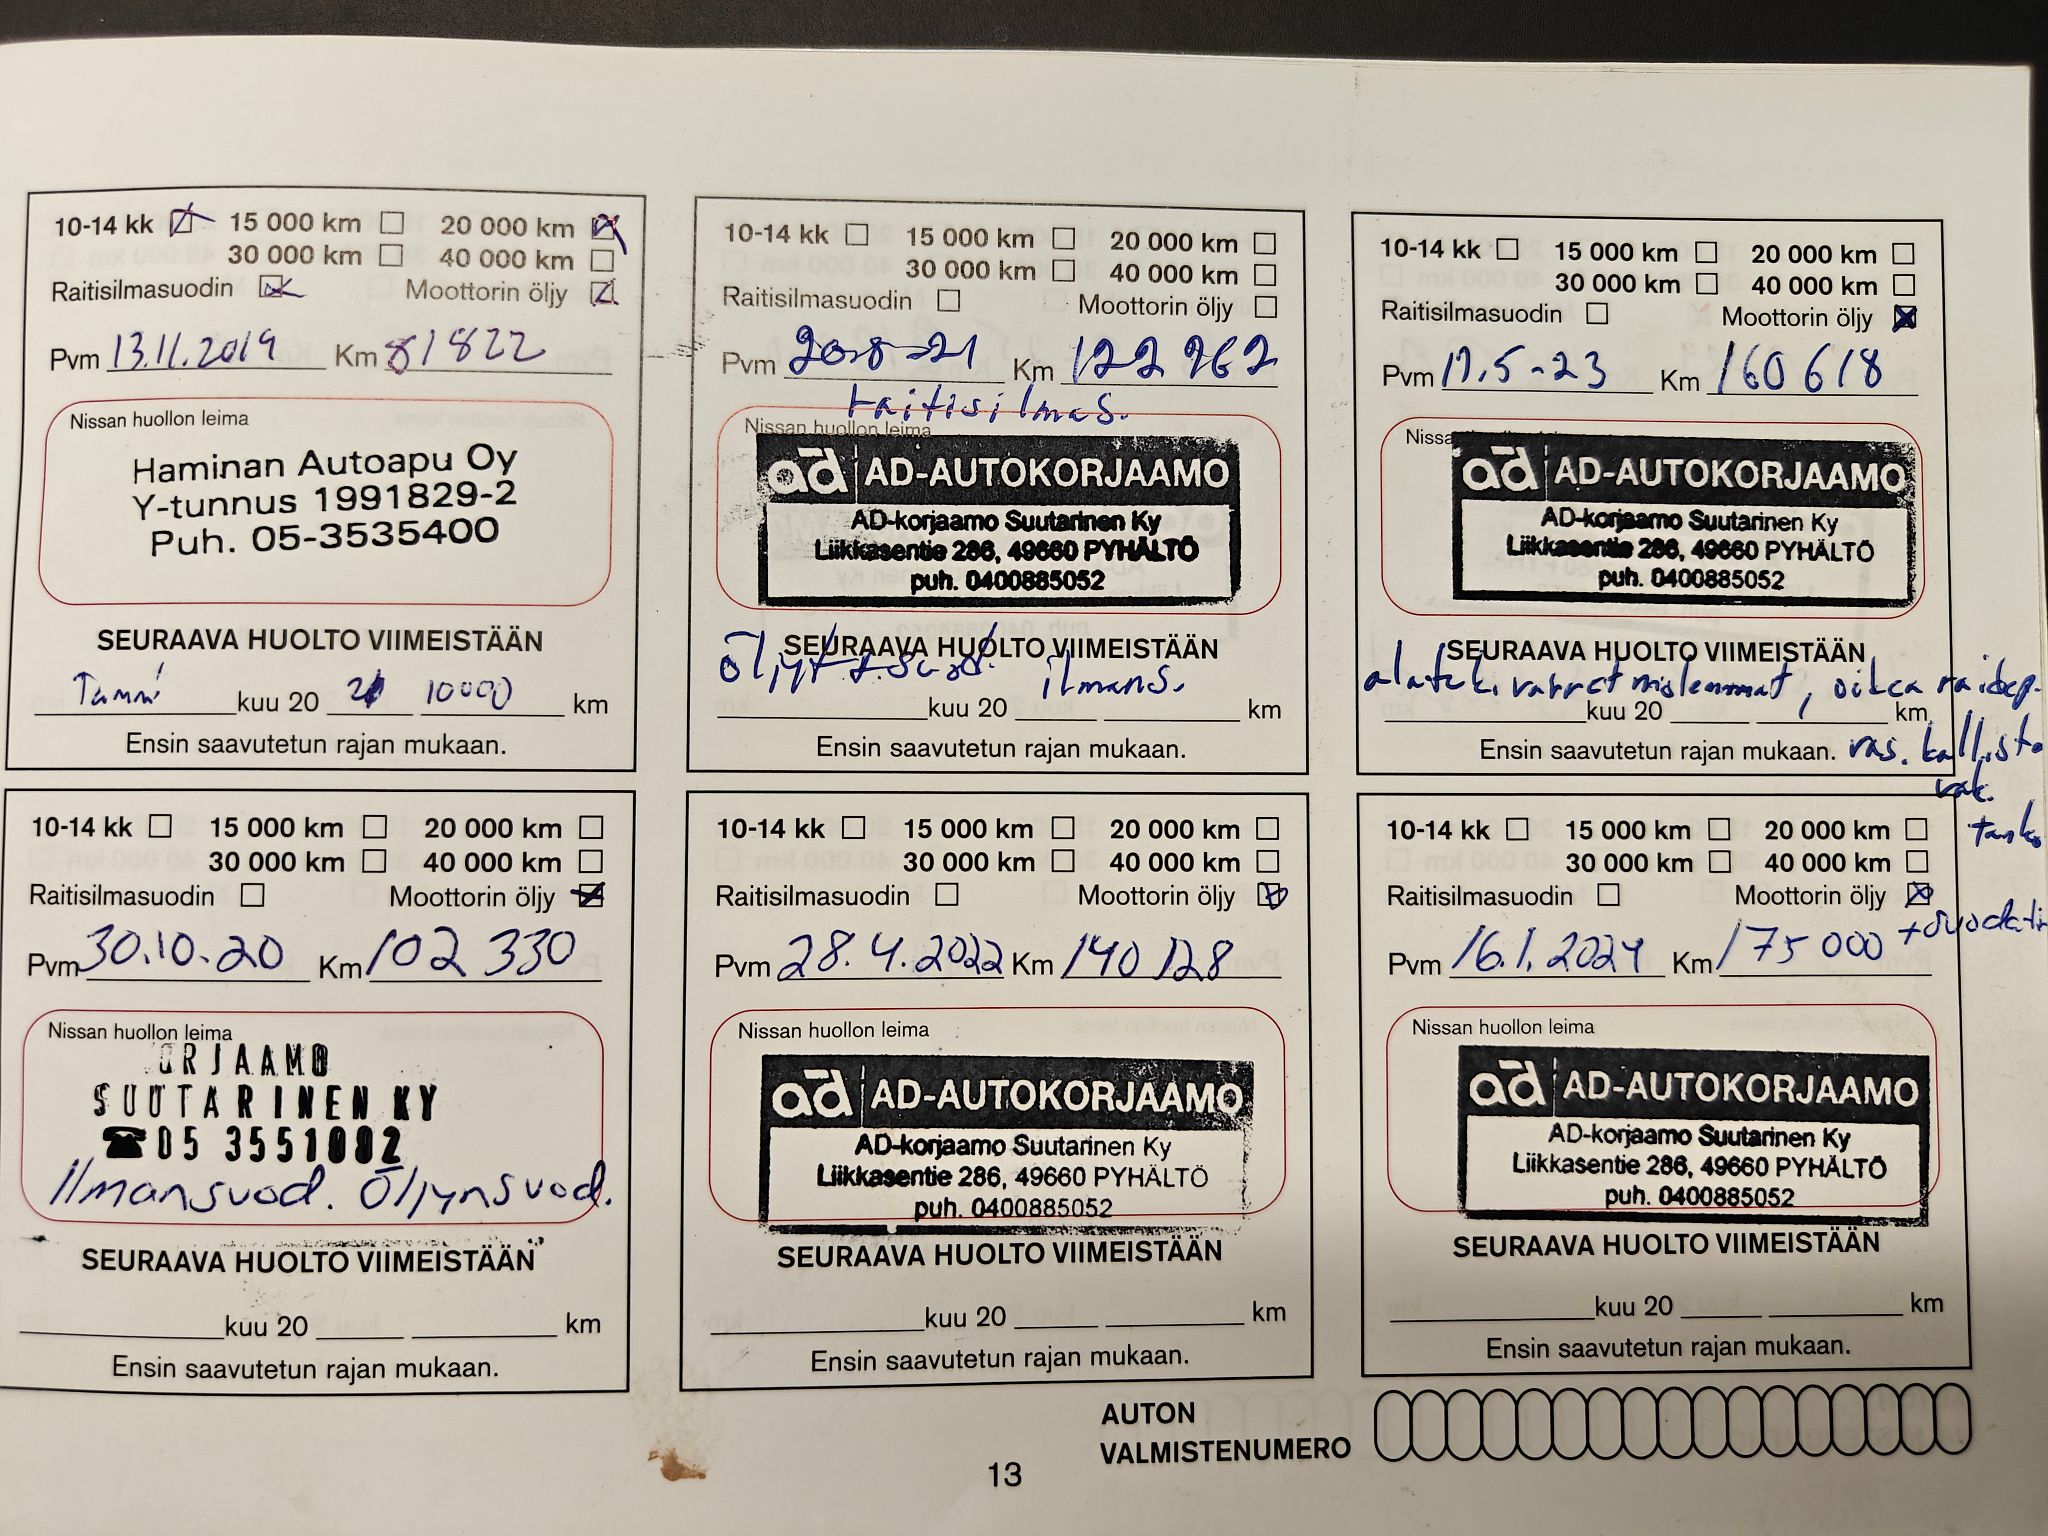 10-14 kk 15 000 km 20 000 km
30 000 km 40 000 km
Raitisilmasuodin Moottorin öljy
Pvm 13.11.2019 Km 81822
Nissan huollon leima
Haminan Autoapu Oy
Y-tunnus 1991829-2
Puh. 05-3535400
SEURAAVA HUOLTO VIIMEISTÄÄN
Tammi kuu 20 21 10000 km
Ensin saavutetun rajan mukaan.
10-14 kk 15 000 km 20 000 km
30 000 km 40 000 km
Raitisilmasuodin Moottorin öljy
Pvm 20.8-21 Km 122 262
raitisilmas.
Nissan huollon leima
ad AD-AUTOKORJAAMO
AD-korjaamo Suutarinen Ky
Liikkasentie 286, 49660 PYHÄLTÖ
puh. 0400885052
SEURAAVA HUOLTO VIIMEISTÄÄN
öljyt+suod. ilmans.
kuu 20 km
Ensin saavutetun rajan mukaan.
10-14 kk 15 000 km 20 000 km
30 000 km 40 000 km
Raitisilmasuodin Moottorin öljy
Pvm 17.5-23 Km 160618
ad AD-AUTOKORJAAMO
AD-korjaamo Suutarinen Ky
Liikkasentie 286, 49660 PYHÄLTÖ
puh. 0400885052
SEURAAVA HUOLTO VIIMEISTÄÄN
alatuk. varret molemmat, oikea raidep.
kuu 20 km
Ensin saavutetun rajan mukaan. vas. kallist.
vak.
tanko
10-14 kk 15 000 km 20 000 km
30 000 km 40 000 km
Raitisilmasuodin Moottorin öljy
Pvm 30.10.20 Km 102 330
Nissan huollon leima
ORJAAMO
SUUTARINEN KY
☎05 3551002
Ilmansuod. Öljynsuod.
SEURAAVA HUOLTO VIIMEISTÄÄN
kuu 20 km
Ensin saavutetun rajan mukaan.
10-14 kk 15 000 km 20 000 km
30 000 km 40 000 km
Raitisilmasuodin Moottorin öljy
Pvm 28.4.2022 Km 140 128
Nissan huollon leima
ad AD-AUTOKORJAAMO
AD-korjaamo Suutarinen Ky
Liikkasentie 286, 49660 PYHÄLTÖ
puh. 0400885052
SEURAAVA HUOLTO VIIMEISTÄÄN
kuu 20 km
Ensin saavutetun rajan mukaan.
10-14 kk 15 000 km 20 000 km
30 000 km 40 000 km
Raitisilmasuodin Moottorin öljy
+suodatin
Pvm 16.1.2024 Km 175 000
Nissan huollon leima
ad AD-AUTOKORJAAMO
AD-korjaamo Suutarinen Ky
Liikkasentie 286, 49660 PYHÄLTÖ
puh. 0400885052
SEURAAVA HUOLTO VIIMEISTÄÄN
kuu 20 km
Ensin saavutetun rajan mukaan.
AUTON
VALMISTENUMERO
13